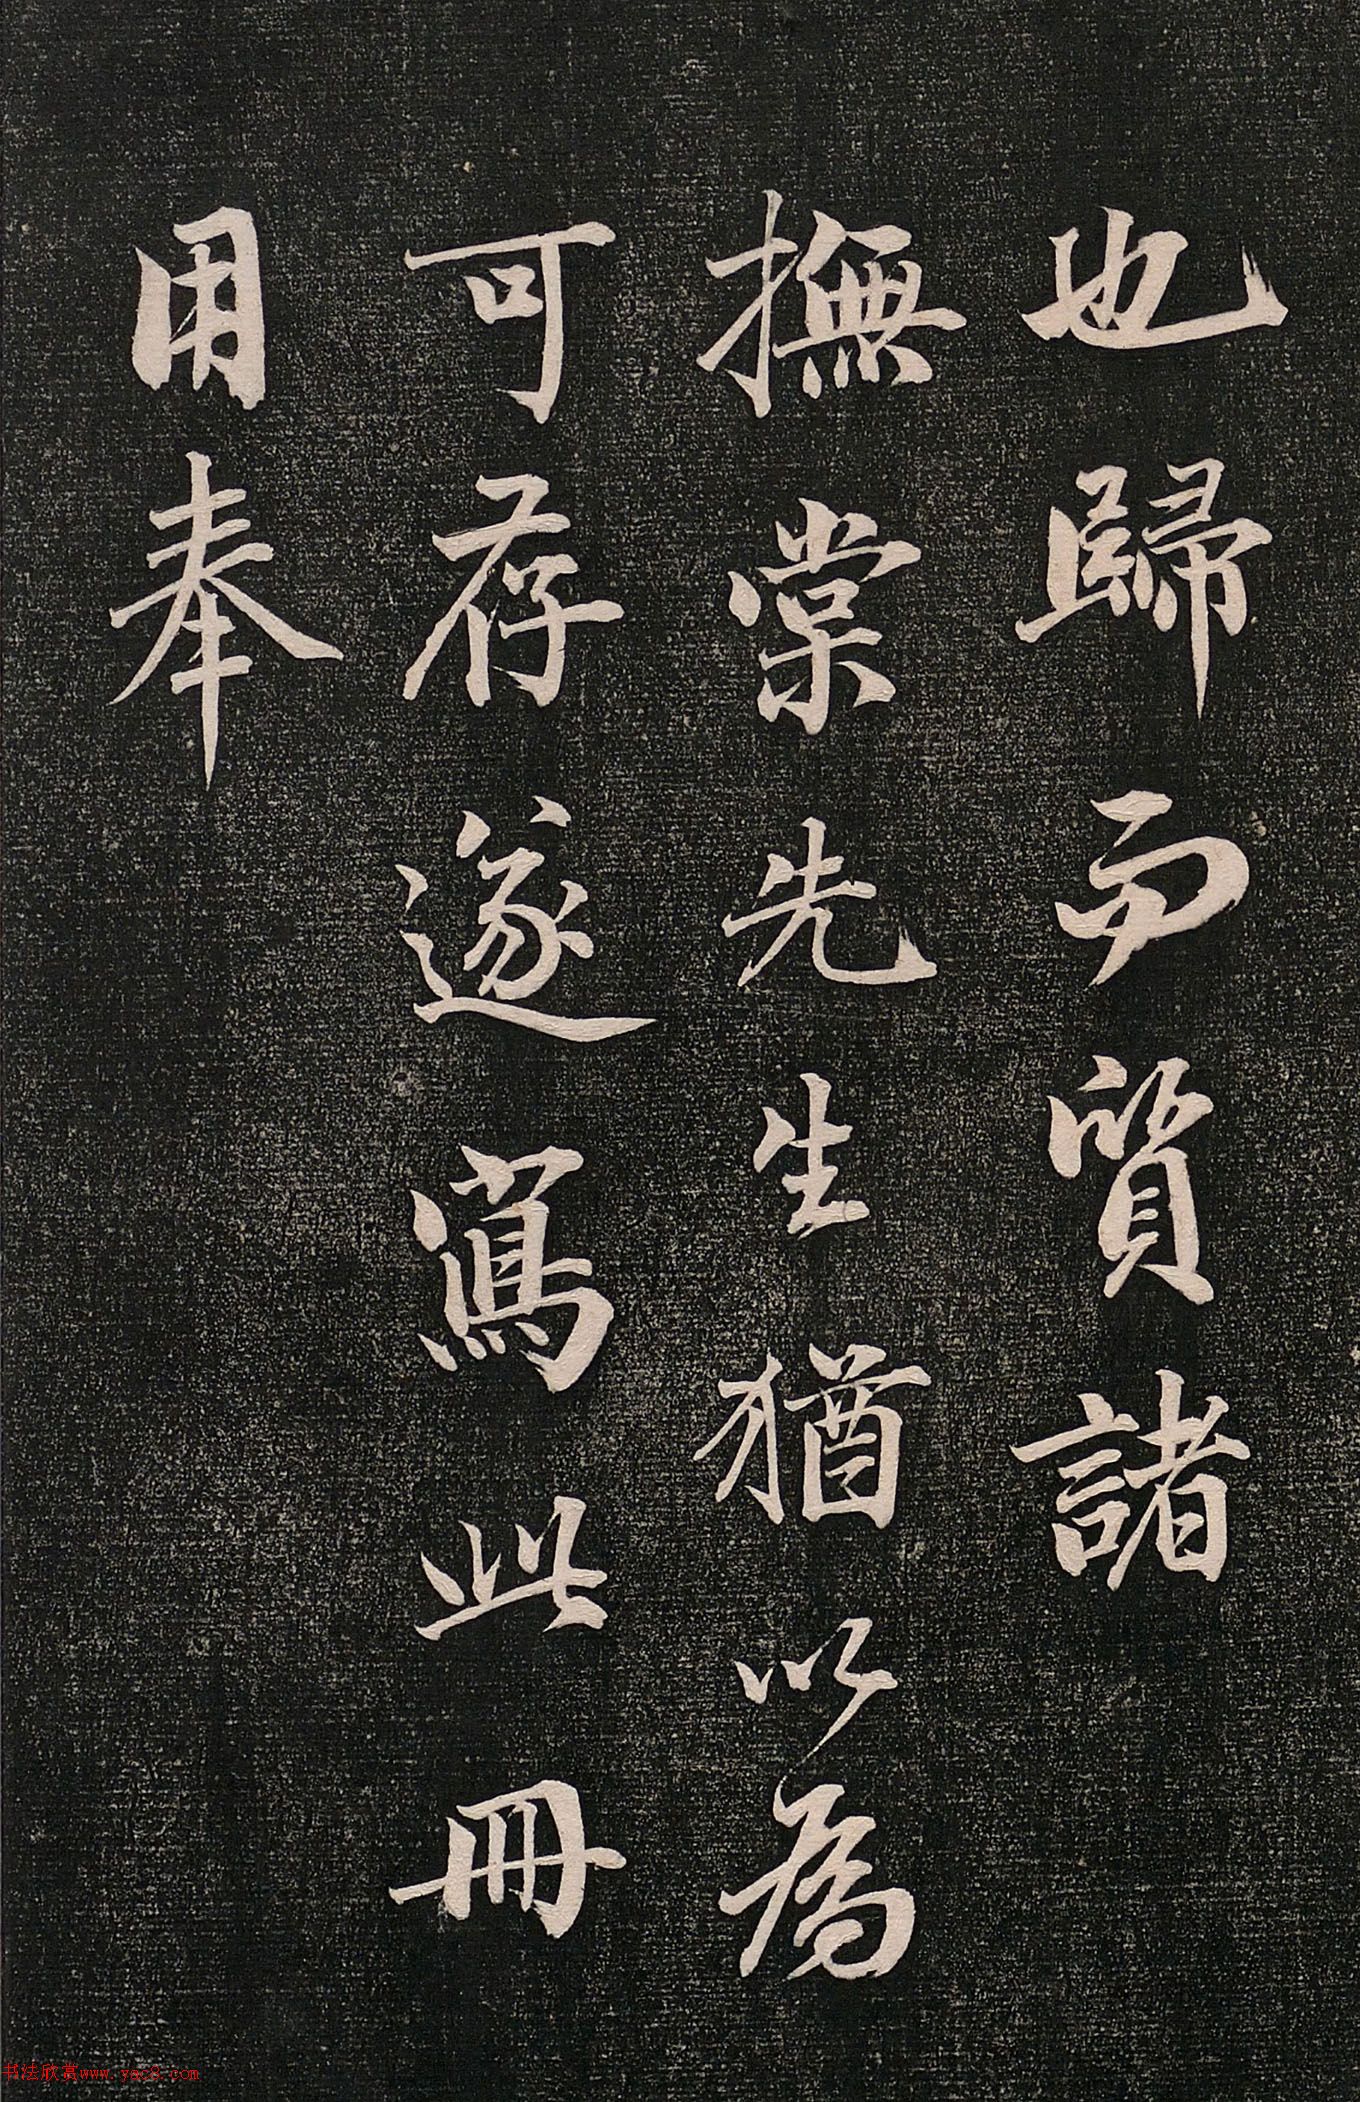 也歸而質諸
撫棠先生猶以為
可存遂寫此冊
用奉
书法欣赏www.yac8.com